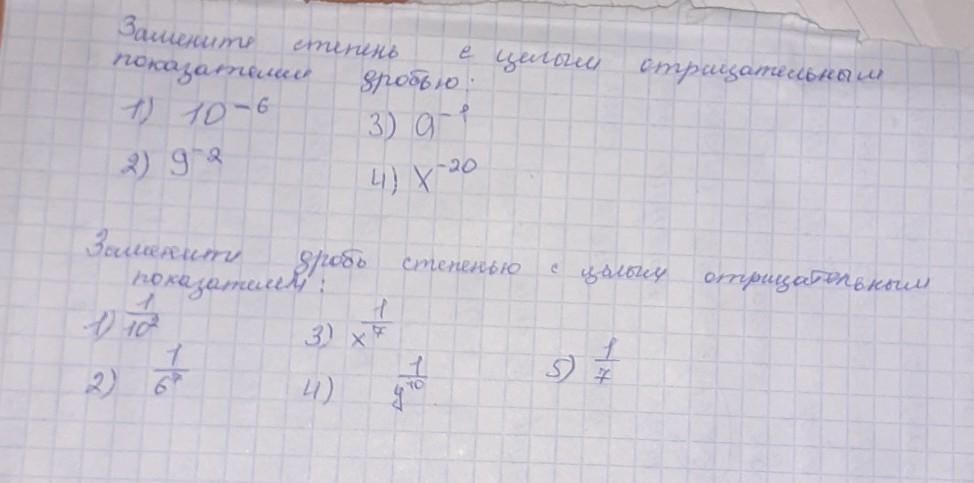 Замените степень с целым отрицательным
показателем дробью:
1) 10⁻⁶ 3) a⁻¹
2) 9⁻² 4) x⁻²⁰
Замените дробь степенью с целым отрицательным
показателем:
1) 1/10² 3) 1/x⁷
2) 1/6⁷ 4) 1/y¹⁰ 5) 1/7